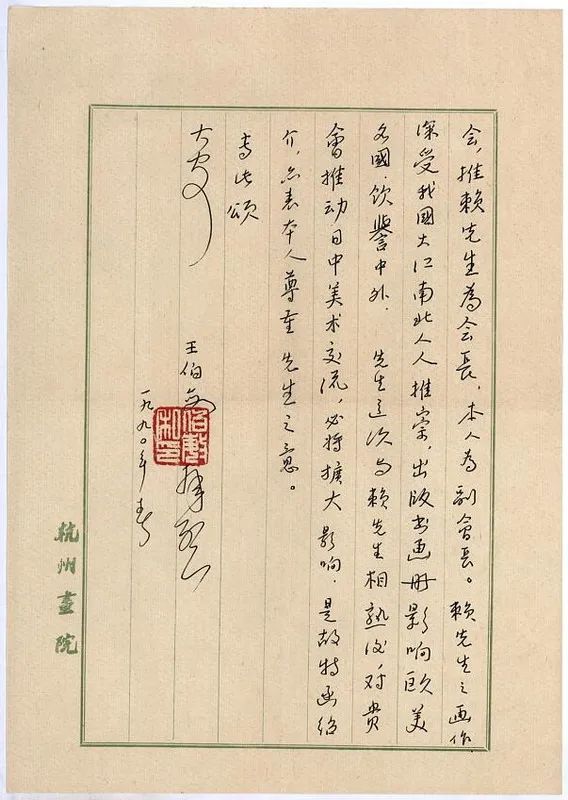 会，推赖先生為会長，本人為副會長。赖先生之画作
深受我國大江南北人人推崇，出版书画册影响欧美
名國，飲譽中外． 先生这次与赖先生相熟后，对貴
會推动日中美术交流，必将擴大影响．是故特函绍
介，亦表本人尊重 先生之意。
专此颂
大安
王伯敏 拜启
一九九〇年春
伯敏
杭州畫院